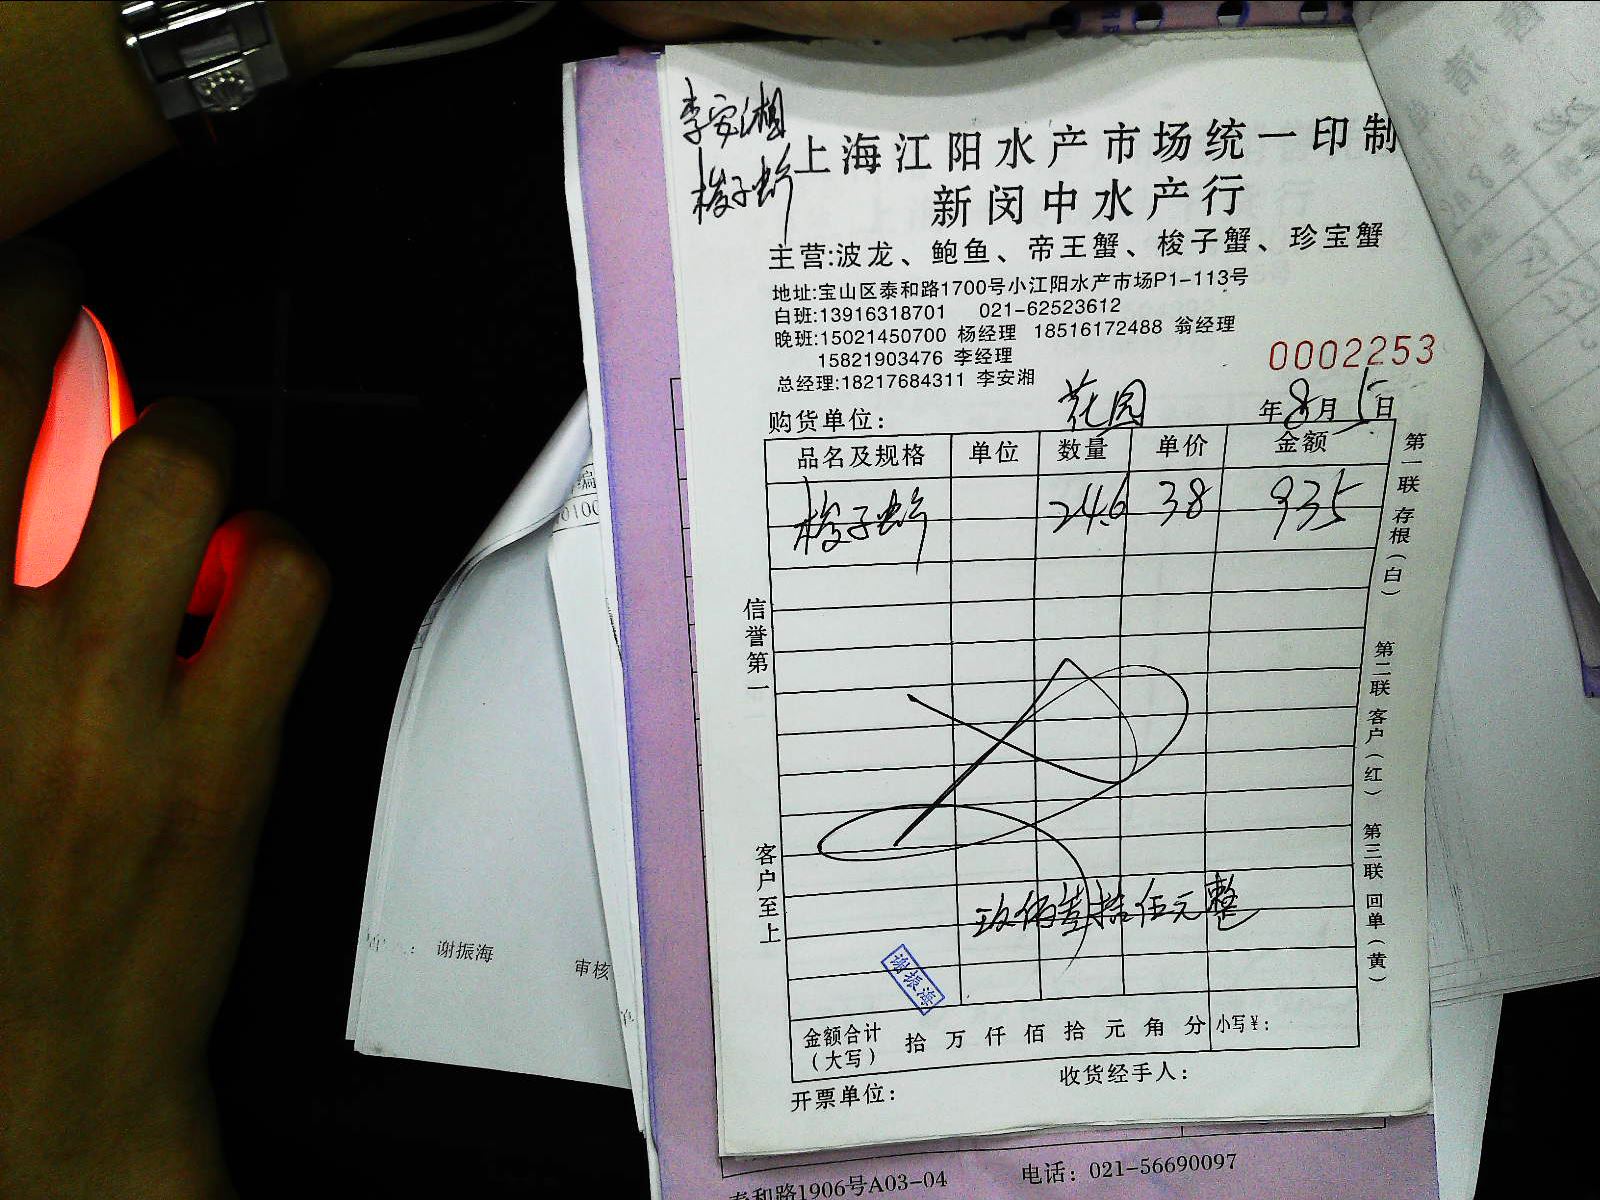 李安湘
梭子蚧
上海江阳水产市场统一印制
新闵中水产行
主营:波龙、鲍鱼、帝王蟹、梭子蟹、珍宝蟹
地址:宝山区泰和路1700号小江阳水产市场P1-113号
白班:13916318701 021-62523612
晚班:15021450700 杨经理 18516172488 翁经理
15821903476 李经理
总经理:18217684311 李安湘
0002253
购货单位: 花园 年8月5日
品名及规格 单位 数量 单价 金额
梭子蚧 24.6 38 935
信誉第一
客户至上
第一联 存根(白)
第二联 客户(红)
第三联 回单(黄)
玖佰叁拾伍元整
谢振海
金额合计(大写) 拾 万 仟 佰 拾 元 角 分 小写¥:
收货经手人:
开票单位:
谢振海 审核
泰和路1906号A03-04 电话: 021-56690097